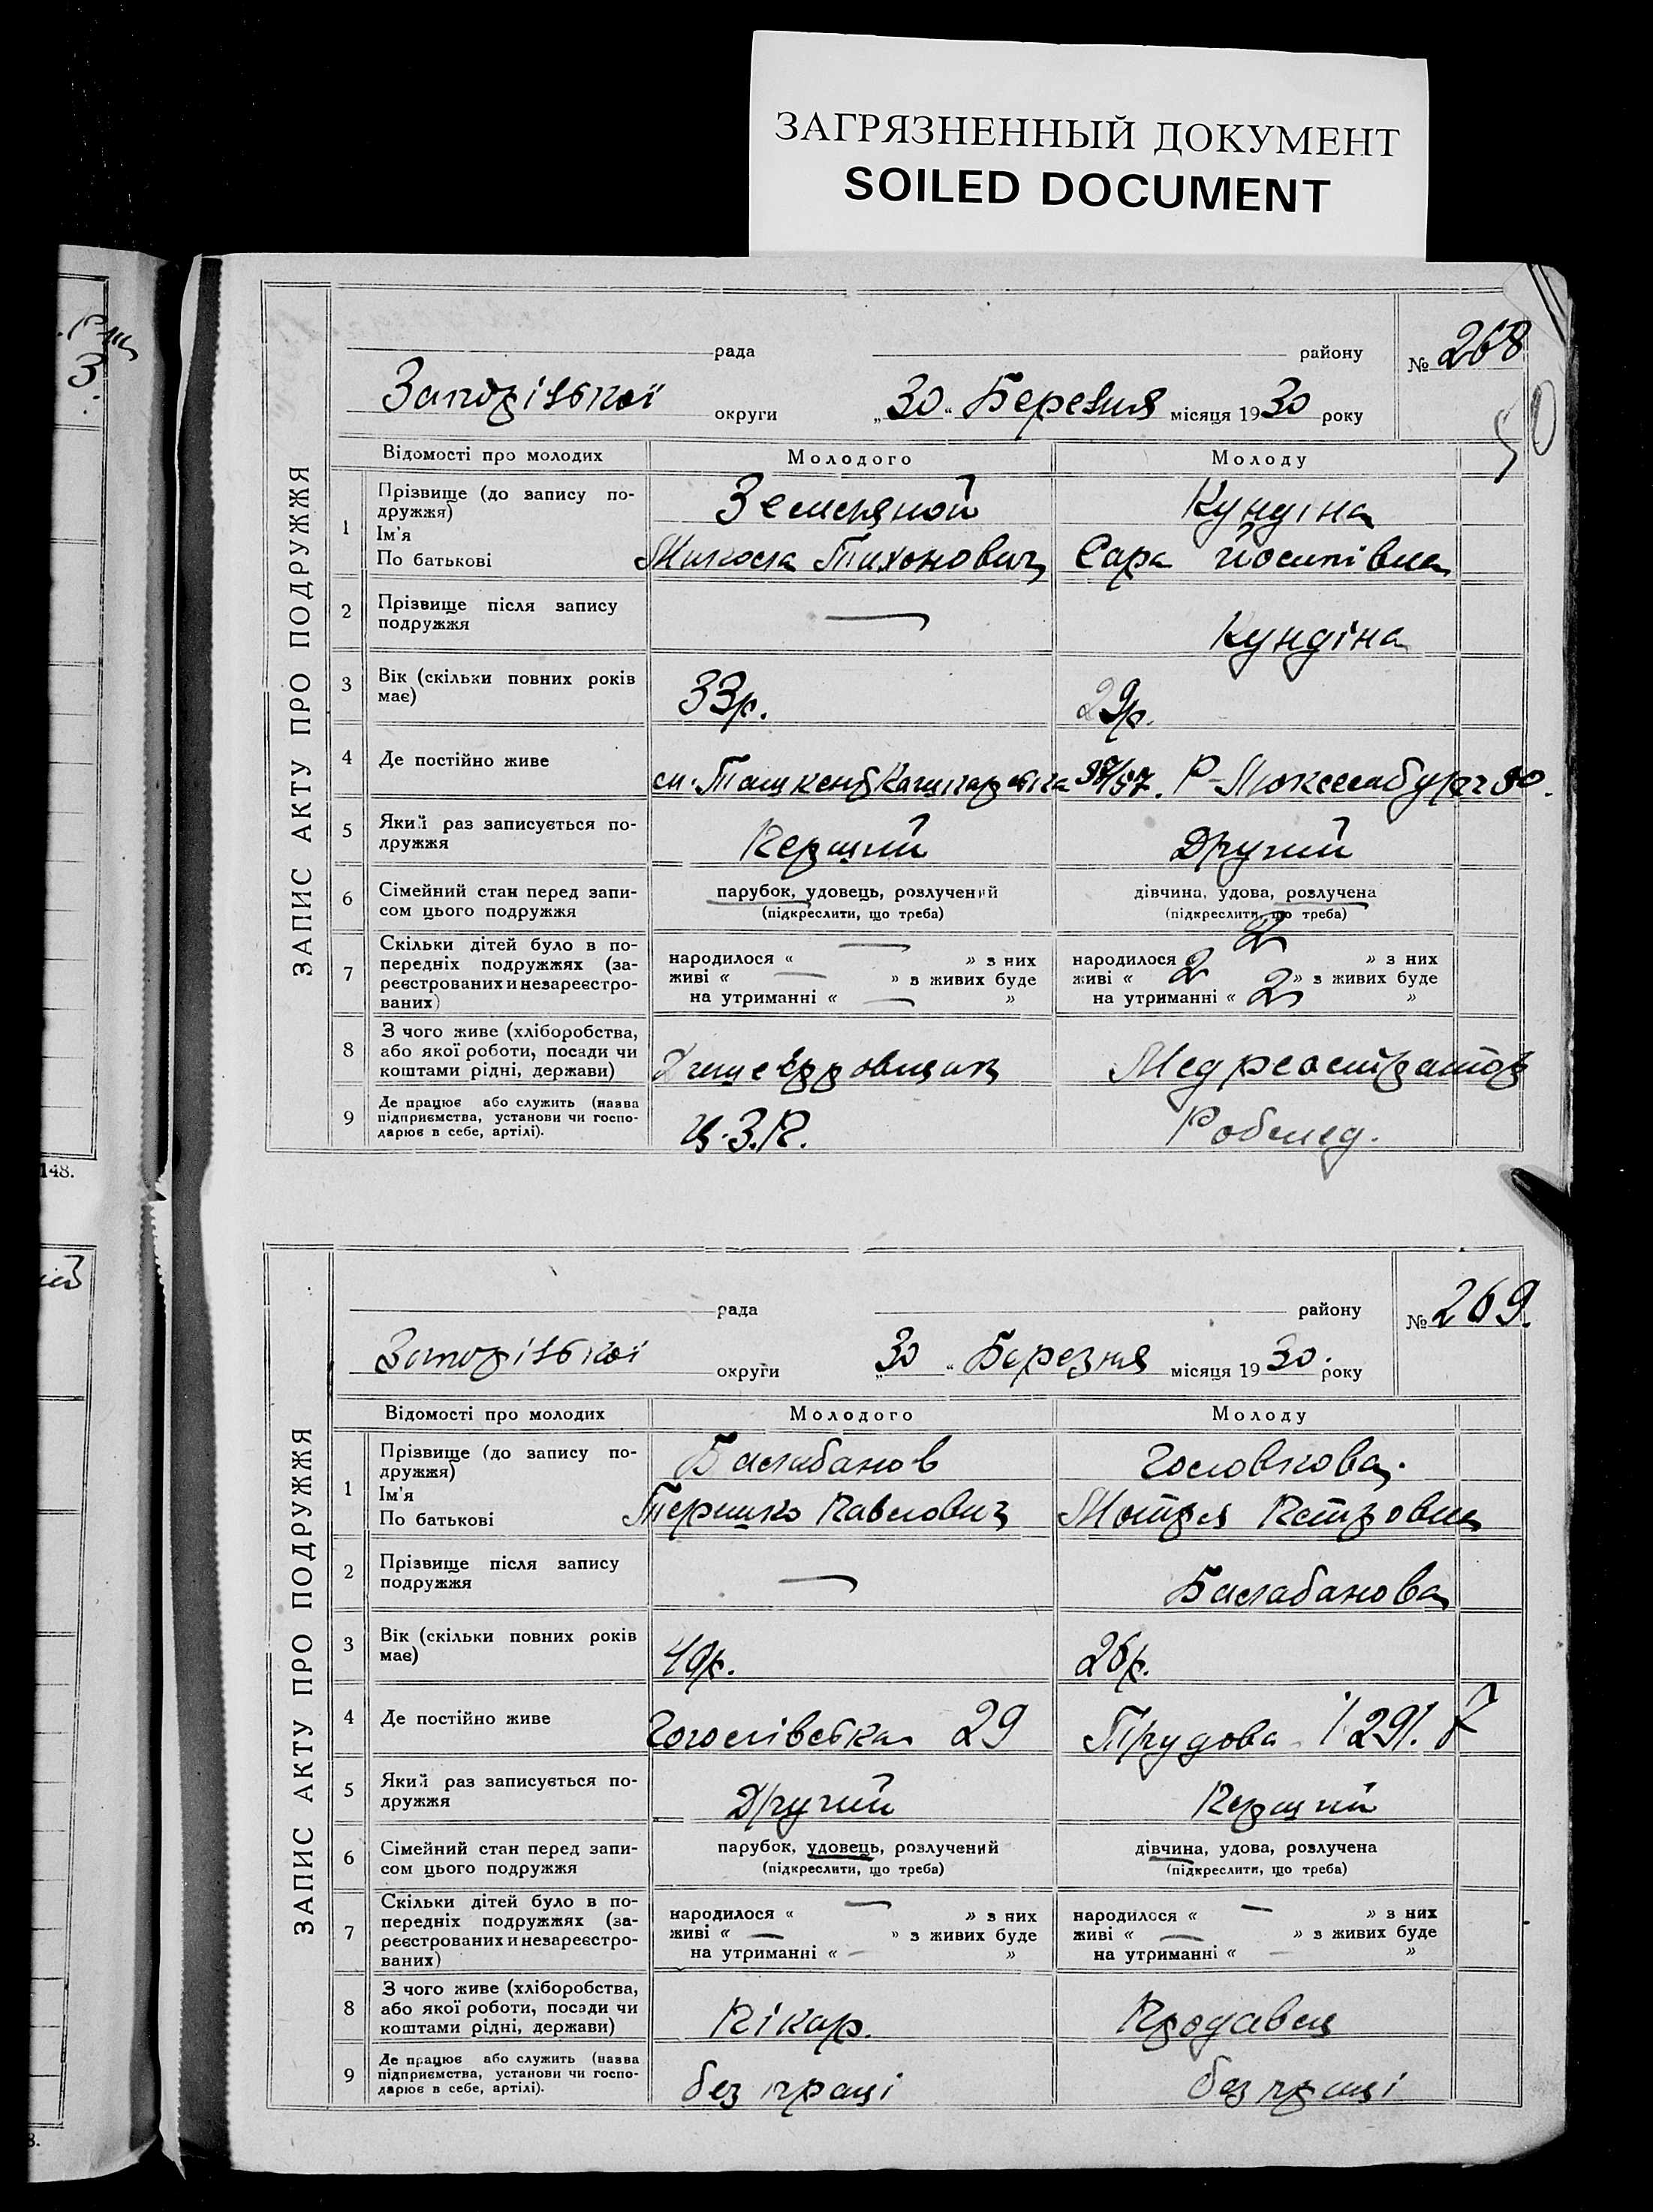 ЗАГРЯЗНЕННЫЙ ДОКУМЕНТ
SOILED DOCUMENT
ЗАПИС АКТУ ПРО ПОДРУЖЖЯ
рада району № 268
Запорізької округи „30“ Березня місяця 1930 року
50
Відомості про молодих Молодого Молоду
1 Прізвище (до запису по-
дружжя) Земляной Кундіна
Ім'я
По батькові Микола Тихонович Сара Йосипівна
2 Прізвище після запису
подружжя — Кундіна
3 Вік (скільки повних років
має) 33р. 29р.
4 Де постійно живе м. Ташкент 97/97. Р-Люксембург 80.
5 Який раз записується по-
дружжя Перший Другий
6 Сімейний стан перед запи-
сом цього подружжя
парубок, удовець, розлучений
(підкреслити, що треба)
дівчина, удова, розлучена
(підкреслити, що треба)
7 Скільки дітей було в по-
передніх подружжях (за-
реєстрованих и незареєстро-
ваних)
народилося « — » з них
живі « — » з живих буде
на утриманні « — »
народилося « 2 » з них
живі « 2 » з живих буде
на утриманні « 2 »
8 З чого живе (хліборобства,
або якої роботи, посади чи
коштами рідні, держави) Медреєстратор
9 Де працює або служить (назва
підприємства, установи чи госпо-
дарює в себе, артілі). Ц.З.К. Робмед.
148.
ЗАПИС АКТУ ПРО ПОДРУЖЖЯ
рада району № 269.
Запорізької округи „30“ Березня місяця 1930. року
Відомості про молодих Молодого Молоду
1 Прізвище (до запису по-
дружжя) Балабанов Головкова.
Ім'я
По батькові Терешко Павлович Мотря Петровна
2 Прізвище після запису
подружжя — Балабанова
3 Вік (скільки повних років
має) 49р. 26р.
4 Де постійно живе Гоголівська 29 Трудова 129
5 Який раз записується по-
дружжя Другий Перший
6 Сімейний стан перед запи-
сом цього подружжя
парубок, удовець, розлучений
(підкреслити, що треба)
дівчина, удова, розлучена
(підкреслити, що треба)
7 Скільки дітей було в по-
передніх подружжях (за-
реєстрованих и незареєстро-
ваних)
народилося « — » з них
живі « — » з живих буде
на утриманні « — »
народилося « — » з них
живі « — » з живих буде
на утриманні « — »
8 З чого живе (хліборобства,
або якої роботи, посади чи
коштами рідні, держави) Пікар. Продавец
9 Де працює або служить (назва
підприємства, установи чи госпо-
дарює в себе, артілі). без праці без праці